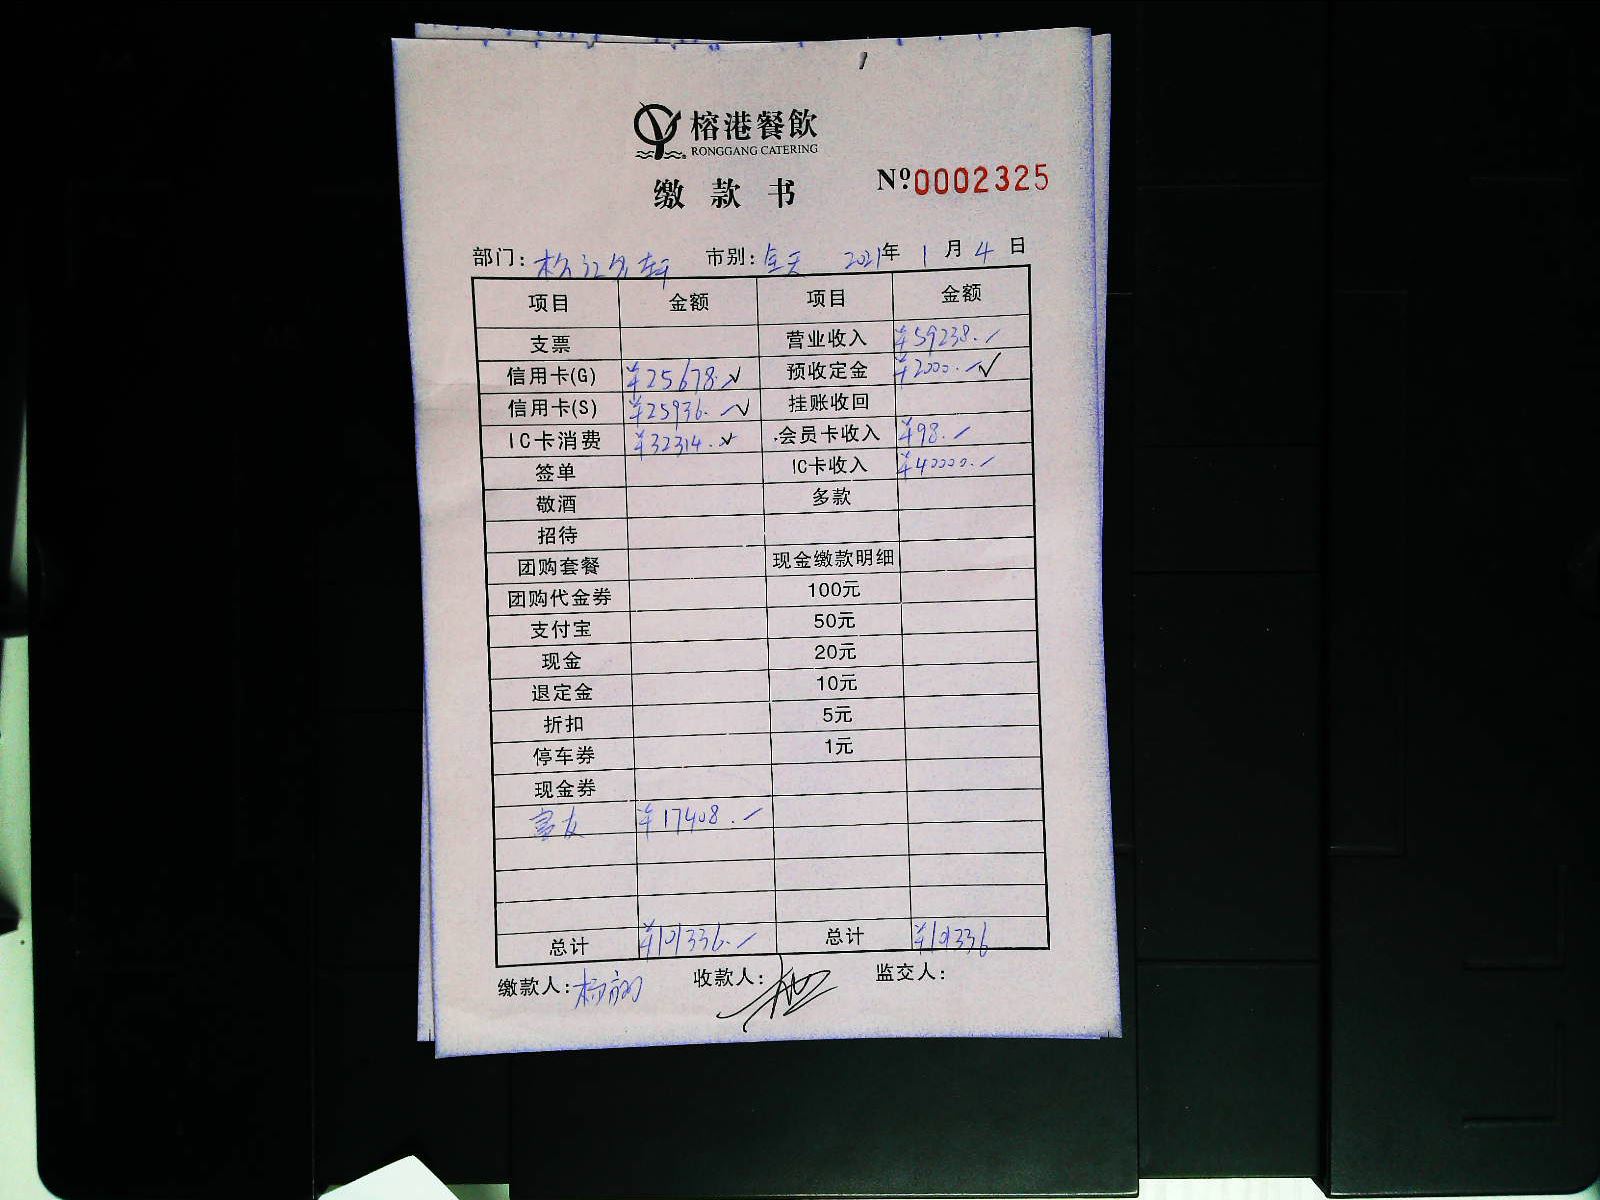 榕港餐飲
RONGGANG CATERING
缴款书 Nº0002325
部门: 市别:全天 2021年1月4日
项目 金额 项目 金额
支票 营业收入 ¥59238.
信用卡(G) ¥25678. 预收定金 ¥2000.
信用卡(S) ¥25936. 挂账收回
IC卡消费 ¥32314. 会员卡收入 ¥98.
签单 IC卡收入 ¥40000.
敬酒 多款
招待
团购套餐 现金缴款明细
团购代金券 100元
支付宝 50元
现金 20元
退定金 10元
折扣 5元
停车券 1元
现金券
富友 ¥17408.
总计 ¥101336. 总计 ¥101336
缴款人: 收款人: 监交人: